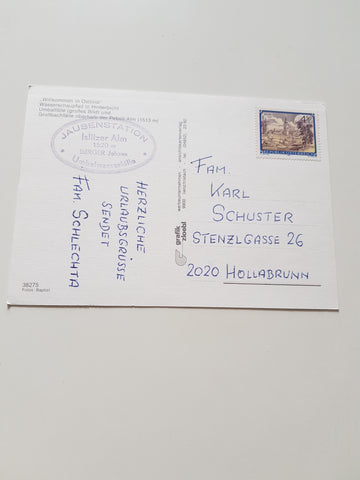 "Willkommen in Osttirol"
Wasserschaupfad in Hinterbichl
Umbalfälle (großes Bild) und
Großbachfälle oberhalb der Pebell Alm (1513 m)
JAUSENSTATION
Islitzer Alm
1520 m
BERGER Johann
HERZLICHE
URLAUBSGRÜSSE
SENDET
FAM. SCHLECHTA
38275
Fotos: Baptist
grafik
zloebl
REPUBLIK ÖSTERREICH
FAM.
KARL
SCHUSTER
STENZLGASSE 26
2020 HOLLABRUNN